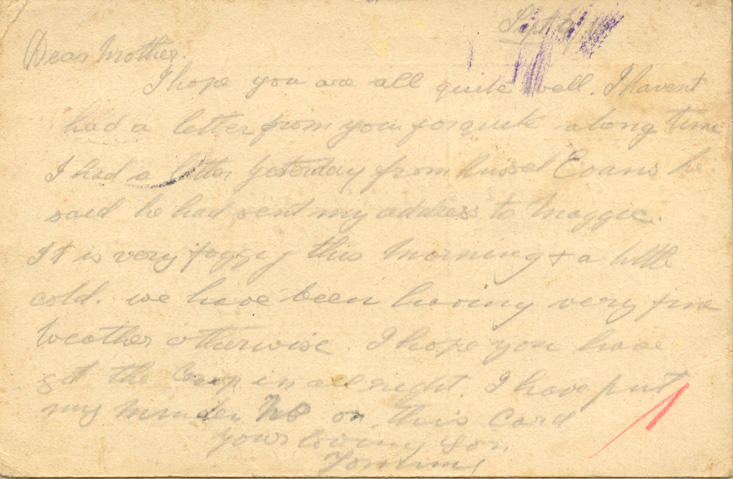 Sept 9
Dear Mother.
I hope you are all quite well. I havent
had a letter from you for quite a long time
I had a letter Yesterday from Russel Evans he
said he had sent my address to Maggie.
It is very foggy this Morning & a little
cold. we have been having very fine
Weather otherwise. I hope you have
got the Crop in all right. I have put
my No on this Card
Your loving Son
Tommy